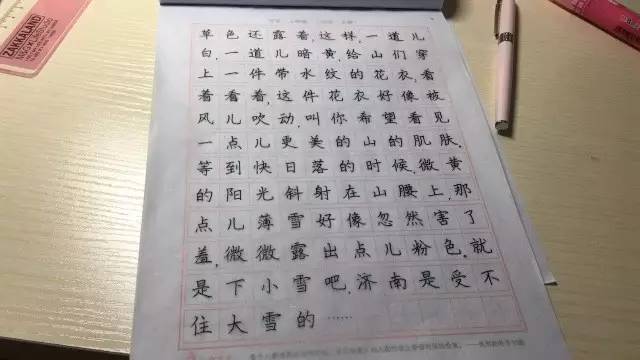 草色还露着,这样,一道儿
白,一道儿暗黄,给山们穿
上一件带水纹的花衣,看
着看着,这件花衣好像被
风儿吹动,叫你希望看见
一点儿更美的山的肌肤,
等到快日落的时候,微黄
的阳光斜射在山腰上,那
点儿薄雪好像忽然害了
羞,微微露出点儿粉色,就
是下小雪吧,济南是受不
住大雪的……